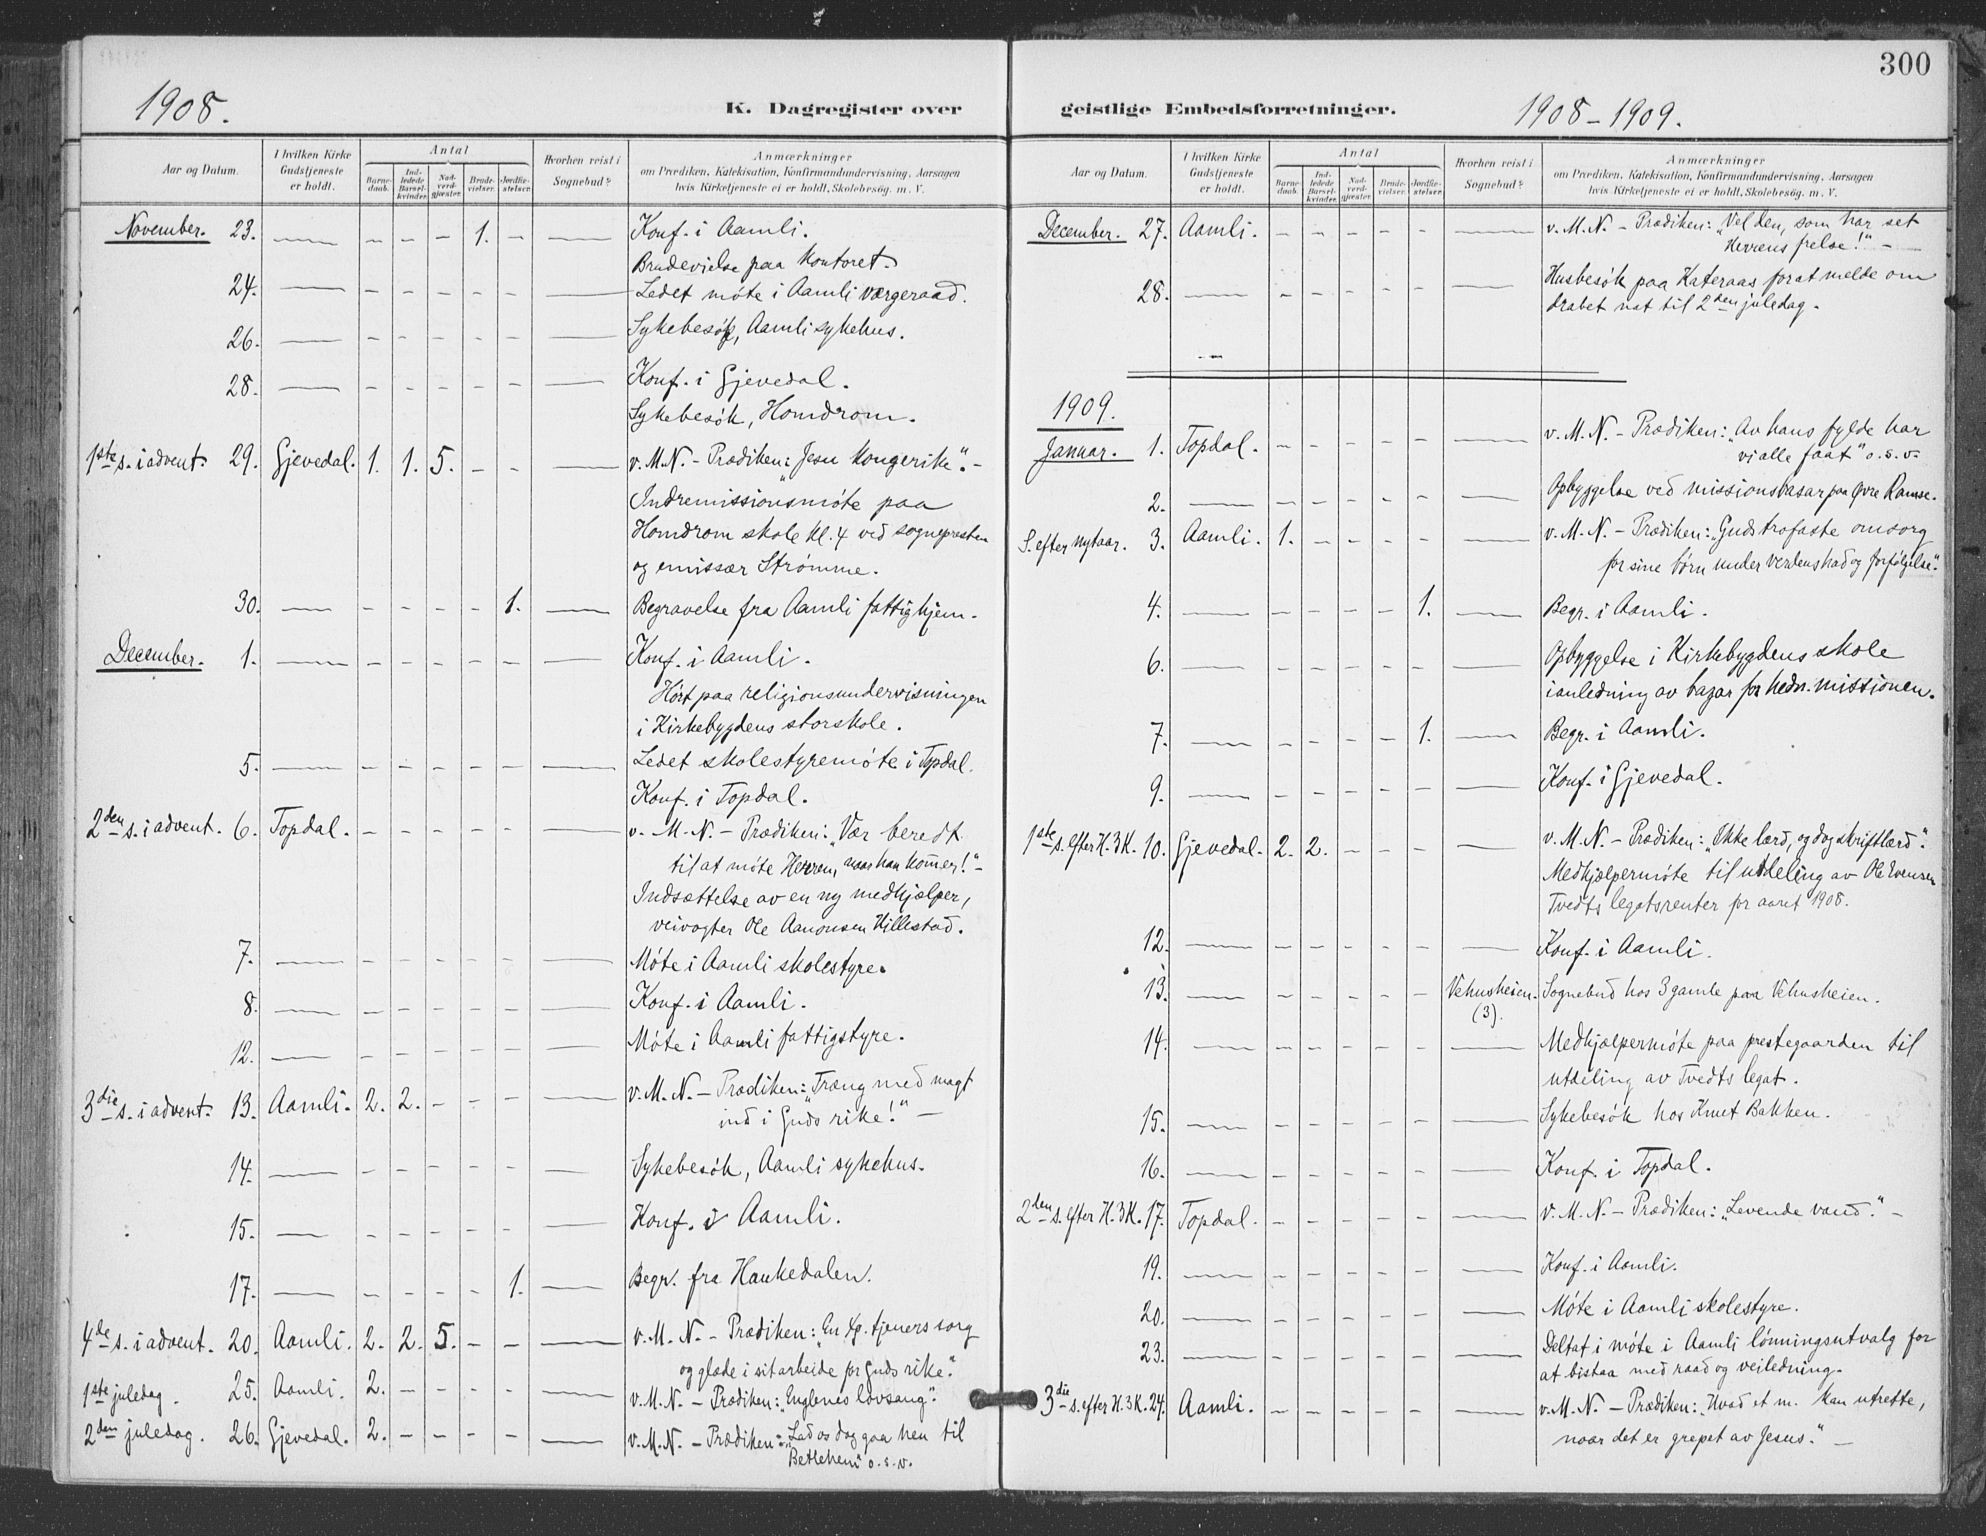 1908.
K. Dagregister over
Aar og Datum.
I hvilken Kirke Gudstjeneste er holdt.
Antal
Barnedaab.
Indledede Barselkvinder.
Nadverdgjester.
Brudevielser.
Jordfæstelser.
Hvorhen reist i Sognebud?
Anmærkninger
om Prædiken, Katekisation, Konfirmandundervisning, Aarsagen
hvis Kirketjeneste ei er holdt, Skolebesøg. m. V.
November. 23. — – – – 1. – — Konf. i Aamli.
Brudevielse paa kontoret.
24. — – – – – – — Ledet møte i Aamli værgeraad.
26. — – – – – – — Sykebesøk, Aamli sykehus.
28. — – – – – – — Konf. i Gjevedal.
Sykebesøk, Homdrom.
1ste s. i advent. 29. Gjevedal. 1. 1. 5. – – — v. M. N. – Prædiken: „Jesu kongerike“. –
Indremissionsmøte paa
Homdrom skole kl. 4 ved sognepresten
og emissær Strømme.
30. — – – – – 1. — Begravelse fra Aamli fattighjem.
December. 1. — – – – – – — Konf. i Aamli.
Hørt paa religionsundervisningen
i Kirkebygdens storskole.
5. — – – – – – — Ledet skolestyremøte i Topdal.
Konf. i Topdal.
2den s. i advent. 6. Topdal. – – – – – — v. M. N. – Prædiken: „Vær beredt
til at møte Herren, naar han kommer!“ –
Indsættelse av en ny medhjælper,
veivogter Ole Aanonsen Hillestad.
7. — – – – – – — Møte i Aamli skolestyre.
8. — – – – – – — Konf. i Aamli.
12. — – – – – – — Møte i Aamli fattigstyre.
3die s. i advent. 13. Aamli. 2. 2. – – – — v. M. N. – Prædiken: „Træng med magt
ind i Guds rike!“ –
14. — – – – – – — Sykebesøk, Aamli sykehus.
15. — – – – – – — Konf. i Aamli.
17. — – – – – 1. — Begr. fra Haukedalen.
4de s. i advent. 20. Aamli. 2. 2. 5. – – — v. M. N. – Prædiken: „En tjeners sorg
og glæde i sit arbeide for Guds rike“.
1ste juledag. 25. Aamli. 2. – – – – — v. M. N. – Prædiken: „Englenes lovsang“.
2den juledag. 26. Gjevedal. 2. – – – – — v. M. N. – Prædiken: „Lad os dog gaa hen til
Betlehem“ o. s. v.
300
geistlige Embedsforretninger.
1908 – 1909.
Aar og Datum.
I hvilken Kirke Gudstjeneste er holdt.
Antal
Barnedaab.
Indledede Barselkvinder.
Nadverdgjester.
Brudevielser.
Jordfæstelser.
Hvorhen reist i Sognebud?
Anmærkninger
om Prædiken, Katekisation, Konfirmandundervisning, Aarsagen
hvis Kirketjeneste ei er holdt, Skolebesøg. m. V.
December. 27. Aamli. – – – – – — v. M. N. – Prædiken: „Vel den, som har set
Herrens frelse!“ –
28. — – – – – – — Husbesøk paa Kateraas forat melde om
drabet nat til 2den juledag.
1909.
Januar. 1. Topdal. – – – – – — v. M. N. – Prædiken: „Av hans fylde har
vi alle faat“ o. s. v.
2. — – – – – – — Opbyggelse ved missionsbasar paa Øvre Ramse.
S. efter nytaar. 3. Aamli. 1. – – – – — v. M. N. – Prædiken: „Guds trofaste omsorg
for sine børn under verdens had og forfølgelse“.
4. — – – – – 1. — Begr. i Aamli.
6. — – – – – – — Opbyggelse i Kirkebygdens skole
i anledning av bazar for hedn. missionen.
7. — – – – – 1. — Begr. i Aamli.
9. — – – – – – — Konf. i Gjevedal.
1ste s. efter H. 3 K. 10. Gjevedal. 2. 2. – – – — v. M. N. – Prædiken: „Ikke lærd, og dog skriftlærd“.
Medhjælpermøte til utdeling av Ole Evensen
Tvedts legatsrenter for aaret 1908.
12. — – – – – – — Konf. i Aamli.
13. — – – – – – Vehusheien. Sognebud hos 3 gamle paa Vehusheien.
(3).
14. — – – – – – — Medhjælpermøte paa prestegaarden til
utdeling av Tvedts legat.
15. — – – – – – — Sykebesøk hos Knut Bakken.
16. — – – – – – — Konf. i Topdal.
2den s. efter H. 3 K. 17. Topdal. – – – – – — v. M. N. – Prædiken: „Levende vand“. –
19. — – – – – – — Konf. i Aamli.
20. — – – – – – — Møte i Aamli skolestyre.
23. — – – – – – — Deltat i møte i Aamli lønningsutvalg for
at bistaa med raad og veiledning.
3die s. efter H. 3 K. 24. Aamli. – – – – – — v. M. N. – Prædiken: „Hvad et m. kan utrette,
naar det er grepet av Jesus“. –